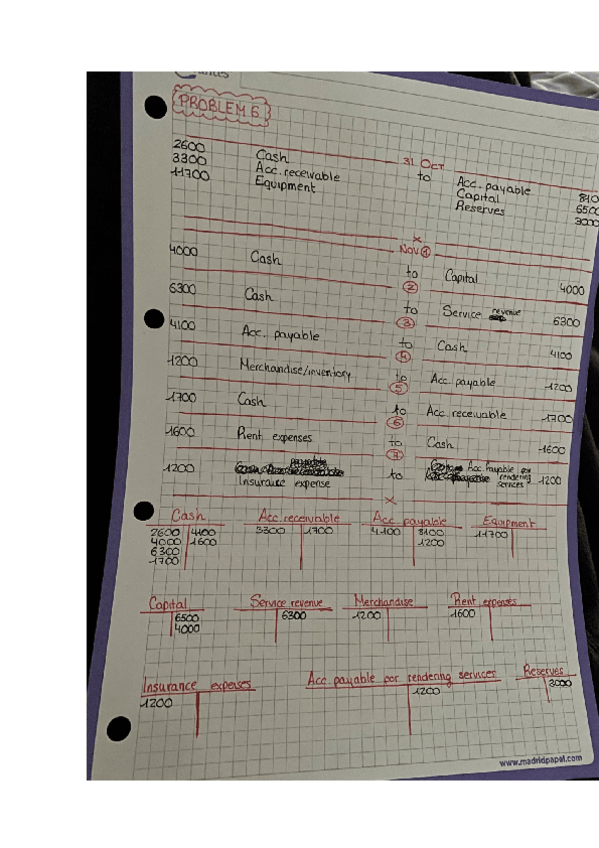 PROBLEM 6
31 OCT
2600 Cash to Acc. payable 810
3300 Acc. receivable Capital 6500
11700 Equipment Reserves 3000
x
Nov 1
4000 Cash to Capital 4000
2
6300 Cash to Service revenue 6300
3
4100 Acc. payable to Cash 4100
4
1200 Merchandise/inventory to Acc payable 1200
5
1700 Cash to Acc. receivable 1700
6
1600 Rent expenses to Cash 1600
7
1200 Insurance expense to Acc. Payable por rendering services 1200
x
Cash Acc. receivable Acc. payable Equipment
2600 4100 3300 1700 4100 8100 11700
4000 1600 1200
6300
1700
Capital Service revenue Merchandise Rent expenses
6500 6300 1200 1600
4000
Insurance expenses Acc payable por rendering services Reserves
1200 1200 3000
www.madridpapel.com